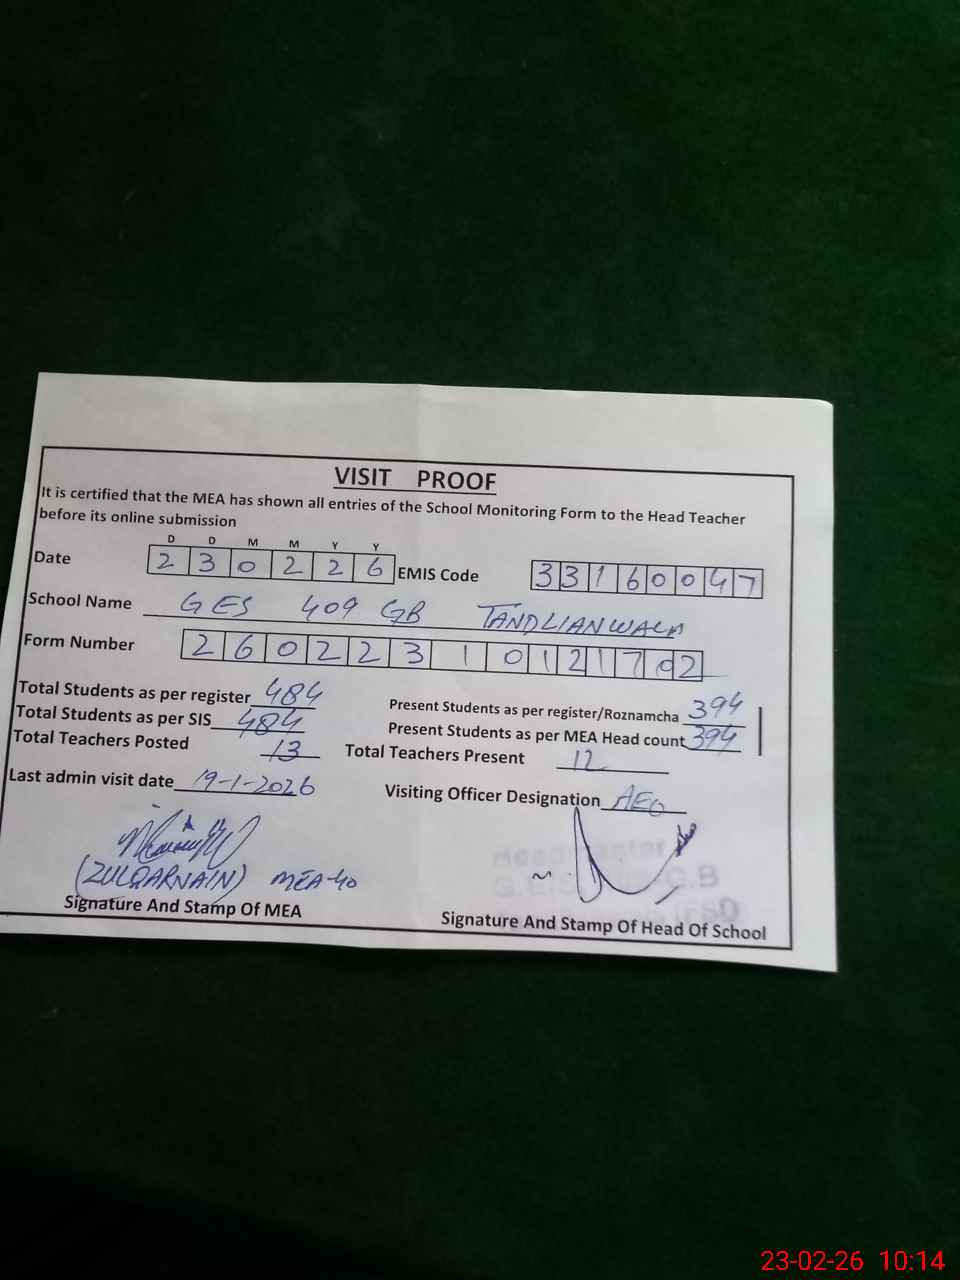 VISIT PROOF
It is certified that the MEA has shown all entries of the School Monitoring Form to the Head Teacher
before its online submission
D D M M Y Y
Date 2 3 0 2 2 6 EMIS Code 3 3 1 6 0 0 4 7
School Name GES 409 GB TANDLIANWALA
Form Number 2 6 0 2 2 3 1 0 1 2 1 7 0 2
Total Students as per register 484 Present Students as per register/Roznamcha 394
Total Students as per SIS 484 Present Students as per MEA Head count 394
Total Teachers Posted 13 Total Teachers Present 12
Last admin visit date 19-1-2026 Visiting Officer Designation AEO
(ZULQARNAIN) MEA-40
Signature And Stamp Of MEA Signature And Stamp Of Head Of School
23-02-26 10:14